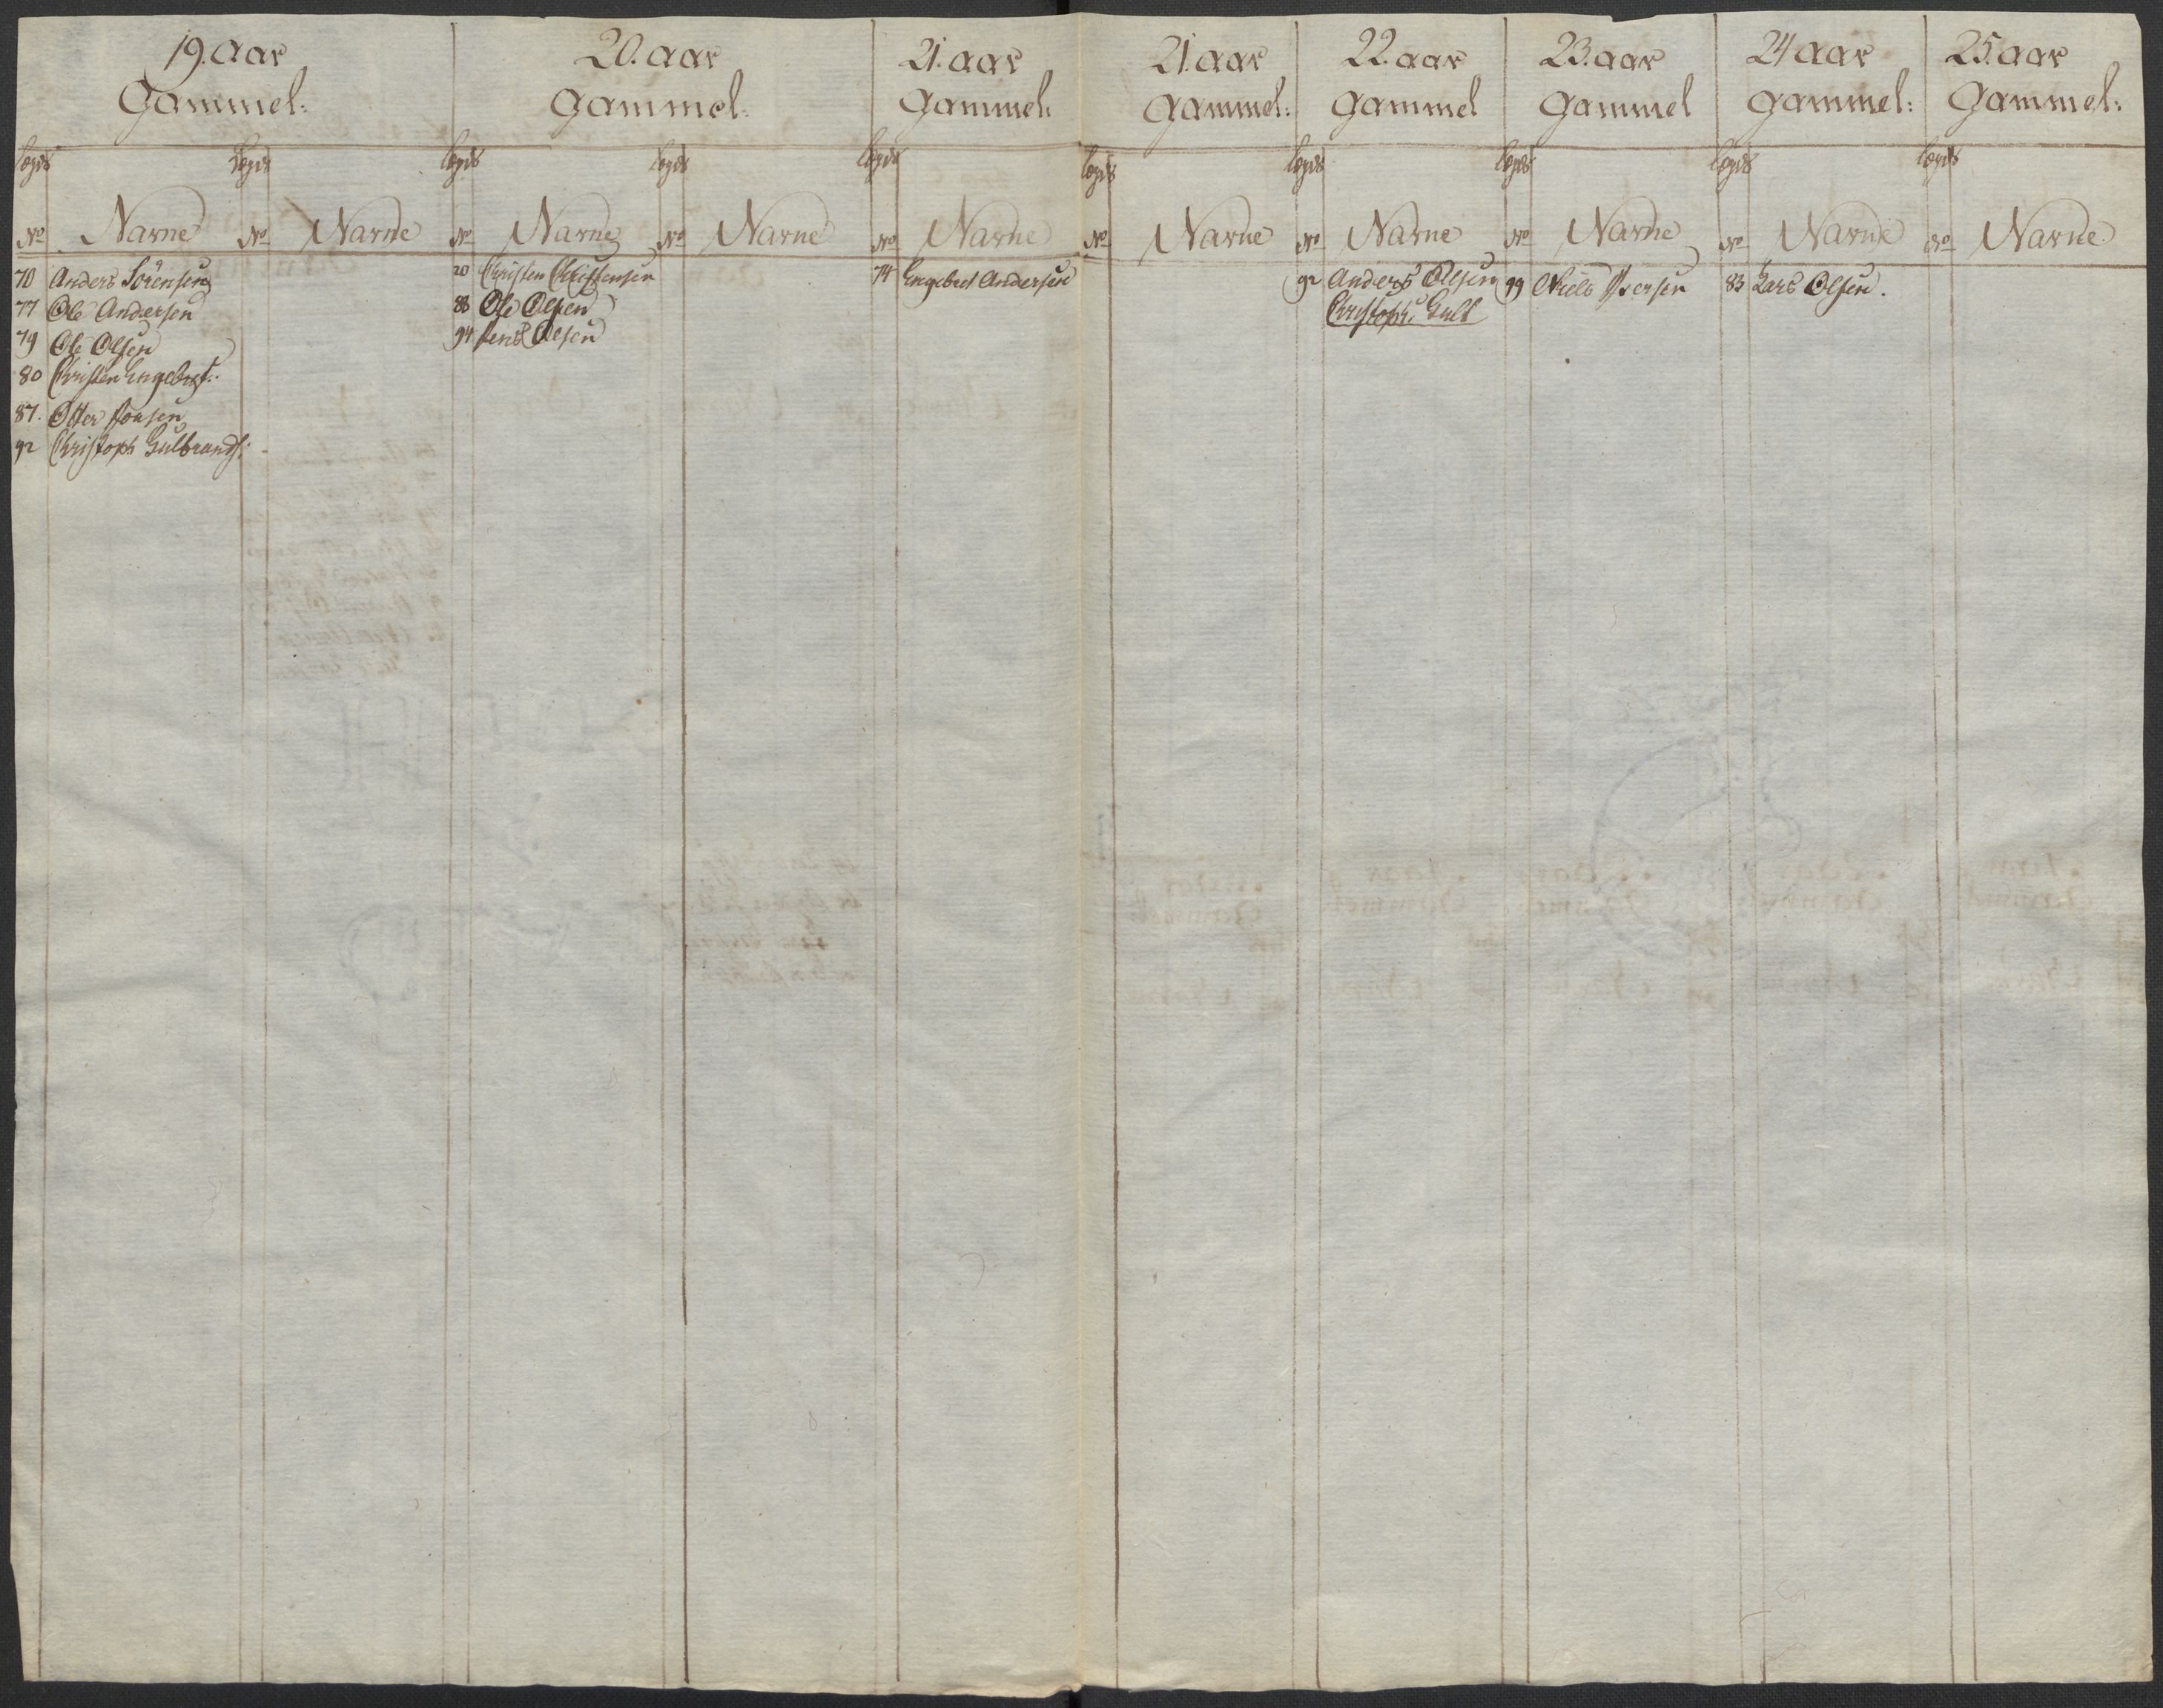 19. aar
Gammel:
20. aar
Gammel:
21. aar
Gammel:
21. aar
Gammel:
22. aar
Gammel
23. aar
Gammel
24 aar
Gammel:
25. aar
Gammel:
Lægds Lægds Lægds Lægds Lægds Lægds Lægds Lægds Lægds Lægds
No Navne No Navne No Navne No Navne No Navne No Navne No Navne No Navne No Navne No Navne
70 Anders Sörensen
77 Ole Andersen
79 Ole Olsen
80 Christen Engebrgt:
87. Otter Jonsen
92 Christoph Gulbrands:
20 Christen Christensen
88 Ole Olsen
94 Jens Olsen
74 Engebret Andersen
92 Anders Olsen
Christoph: Gulb
99 Niels Iversen
83 Lars Olsen.